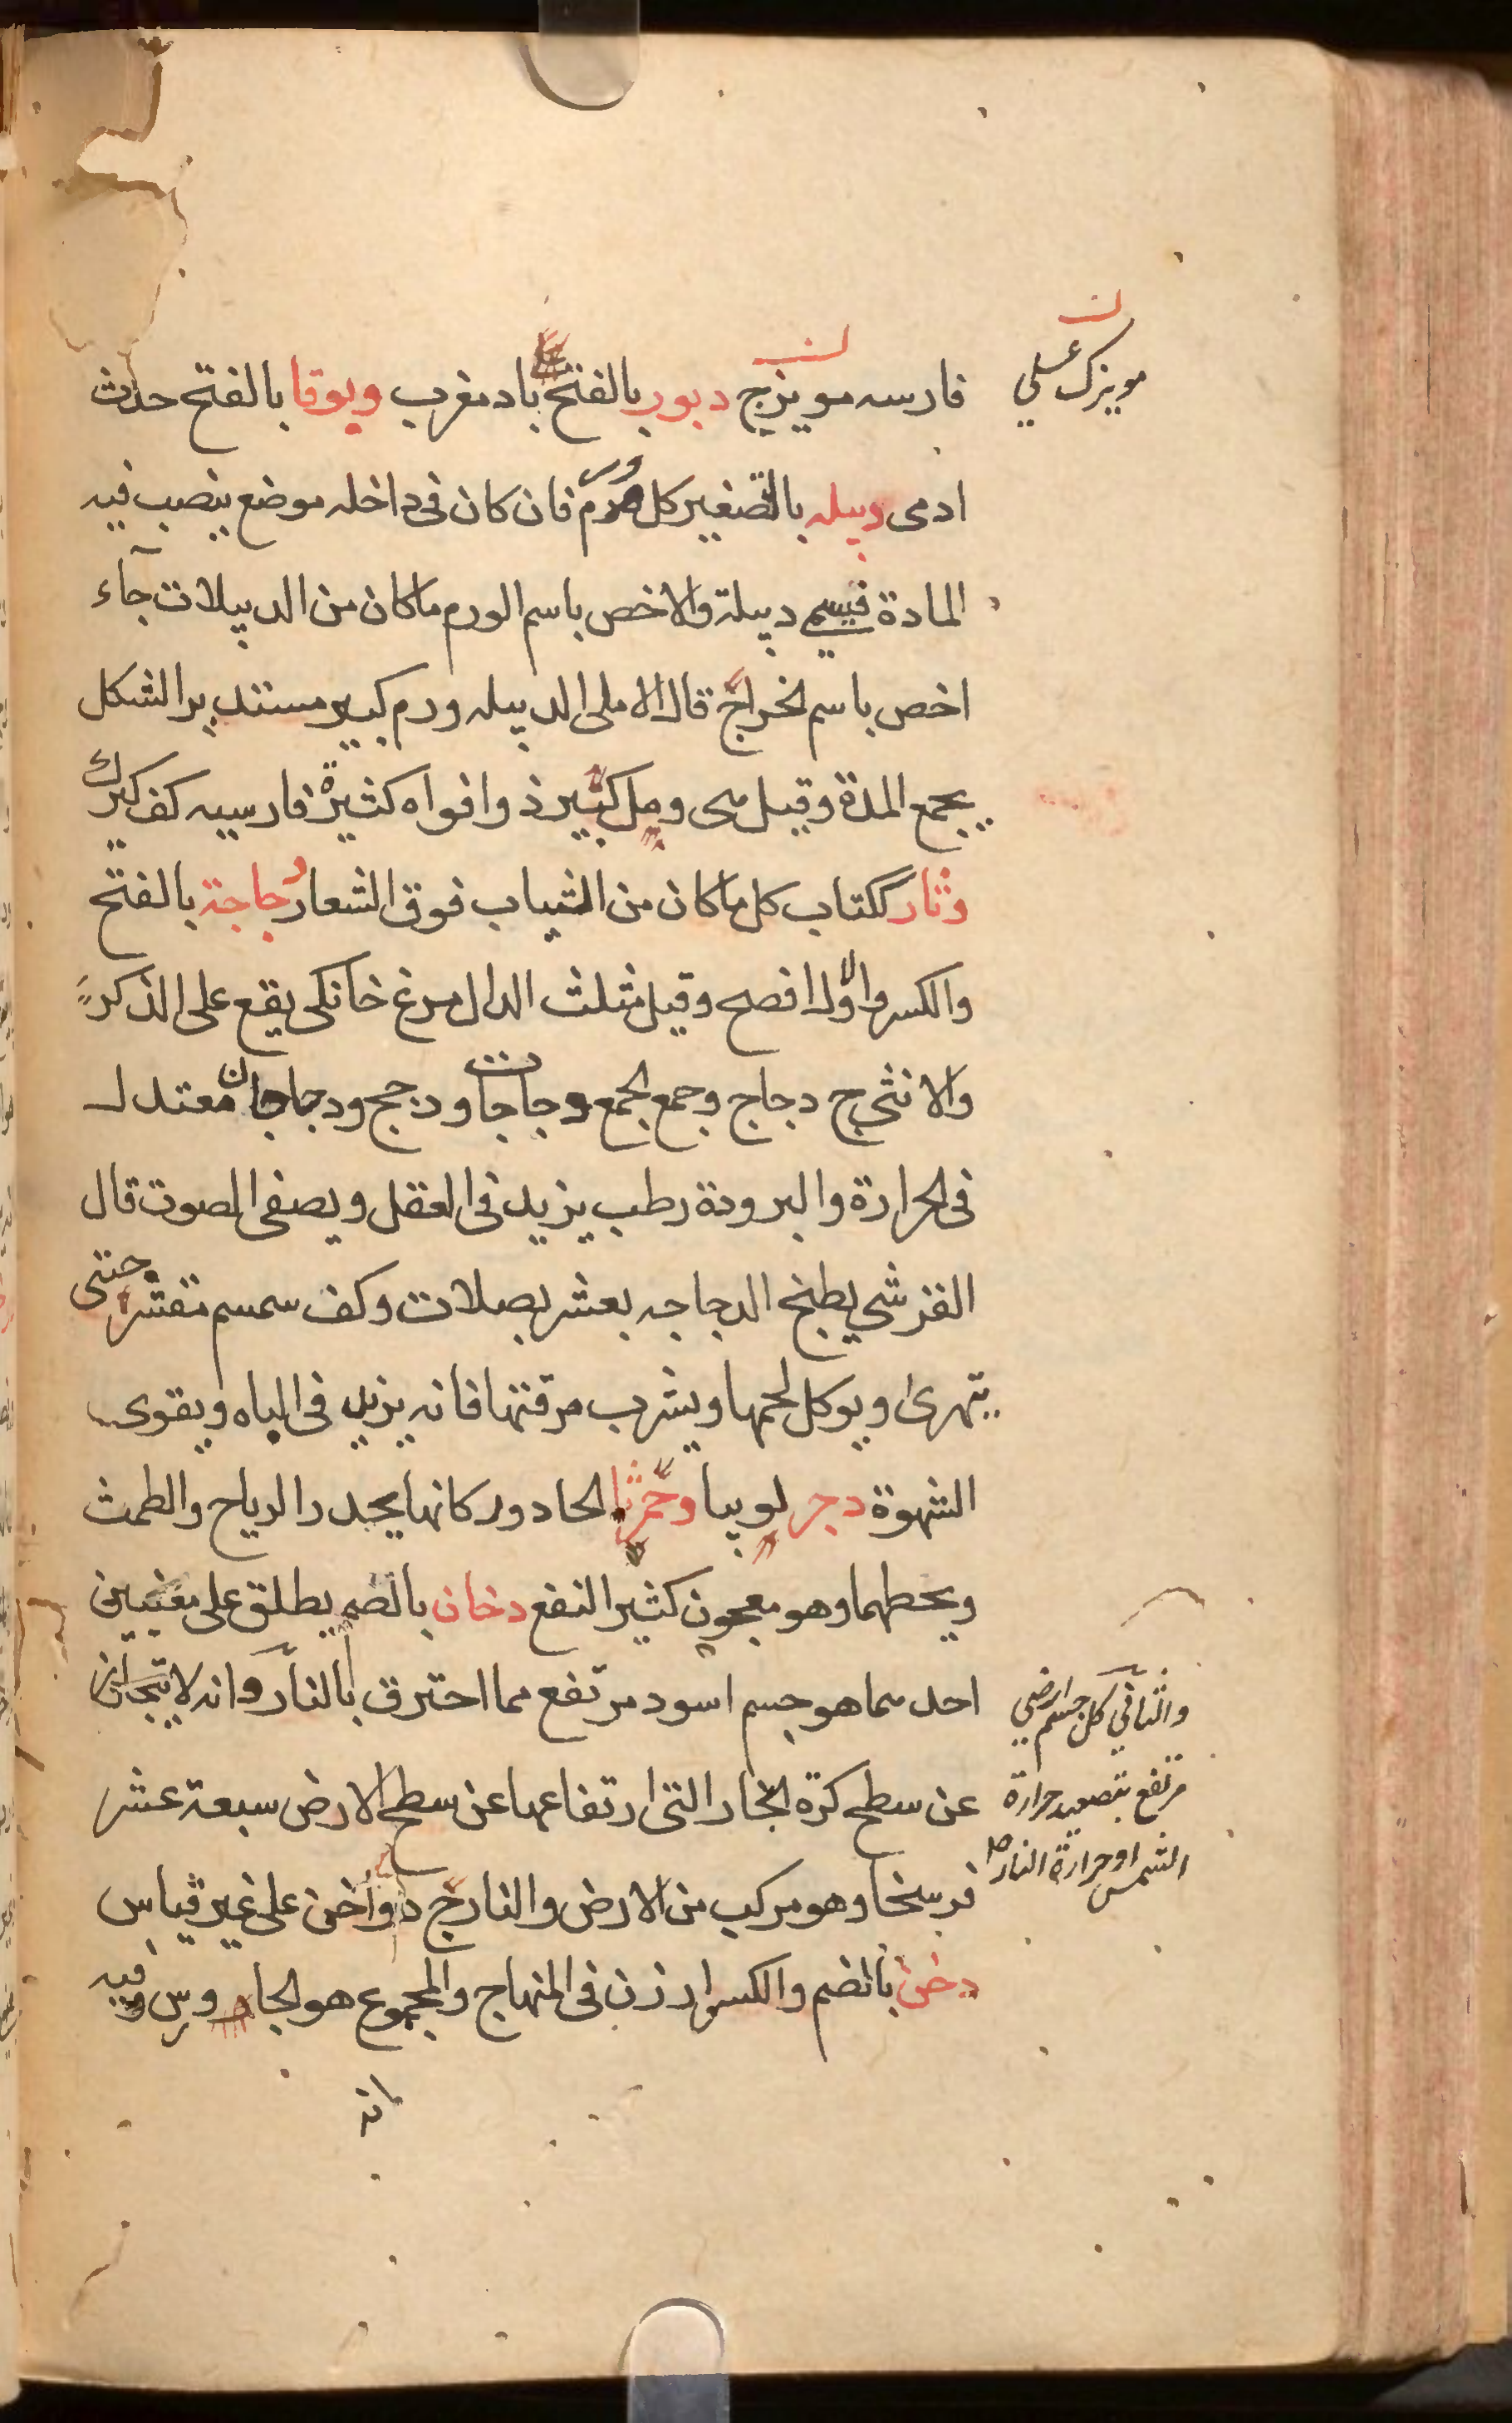 فارسه مويزج دبور بالفتح باد مغرب وبوقا بالفتح حدث
مويزك عسلي
ادمى دبيله بالتصغير كل ورم فان كان فى داخله موضع ينصب فيه
المادة فيسمى دبيلة والاخص باسم الورم ما كان من الدبيلات حآء
اخص باسم الخراج قال الاملى الدبيله ورم كبير مستدير الشكل
يجمع المدة وقيل هى ومل كبير ذو افواه كثيرة فارسيه كف كيرك
دثار ككتاب كل ما كان من الثياب فوق الشعار دجاجة بالفتح
والكسر والاول افصح وقيل مثلث الدال مرغ خانكى يقع على الذكر
والانثى ج دجاج وجمع الجمع دجاجات ودجج ودجاجان معتدل
فى الحرارة والبرودة رطب يزيد فى العقل ويصفى الصوت قال
القرشي يطبخ الدجاجه بعشر بصلات وكف سمسم مقشر حتى
يتهرى ويوكل لحمها ويشرب مرقتها فانه يزيد فى الباه ويقوى
الشهوة دجر لوبيا دحمرثا الحادور كانها يحدر الرياح والطمث
ويحطهما وهو معجون كثير النفع دخان بالضم يطلق على معنيين
احدهما هو جسم اسود مرتفع مما احترق بالنار وانه لا يتجاوز
عن سطح كرة البخار التى ارتفاعها عن سطح الارض سبعة عشر
فرسخا وهو مركب من الارض والنار ج دواخن على غير قياس
دخن بالضم والكسر ارزن فى المنهاج والمجموع هو الجاورس وفيه
والثاني كل جسم ارضي
مرتفع بتصعيد حرارة
الشمس او حرارة النار
انه